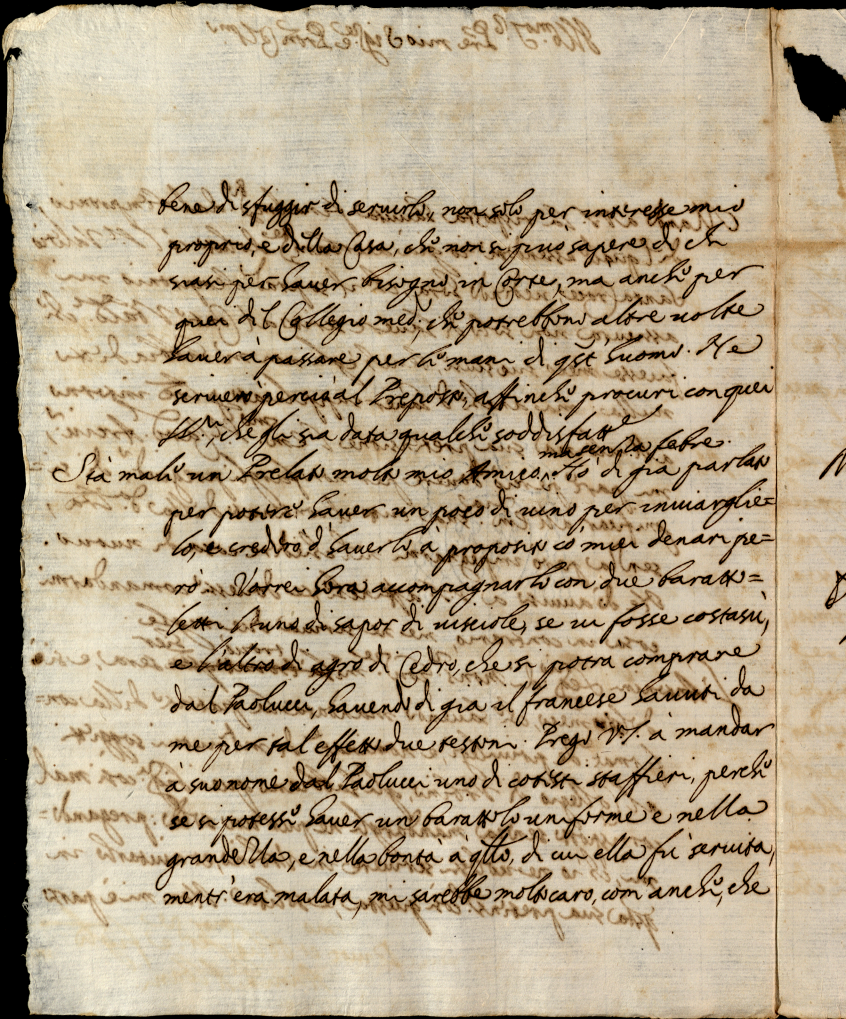 bene di sfuggir di servirlo, non solo per interesse mio
proprio, e della Casa, che non si può sapere di chi
siasi per haver bisogno in Corte, ma anche per
quei del Collegio med.º, che potrebbono altre volte
haver à passare per le mani di qst huomo. Ne
scriverò perciò al Preposto, affinche procuri con quei
che gli sia data qualche soddisfatt.e
Stà male un Prelato molto mio Amico, ma senza febre. Hò di già parlato
per poterè haver un poco di vino per inviarglie=
lo, e crederò d'haverlo à proposito có miei denari pe=
rò. Vorrei hora accompagnarlo con due baratto=
letti l'uno di sapor di visciole, se vi fosse costasù,
e l'altro di agro di Cedro, che si potra comprare
dal Paolucci, havendo di già il francese havuti da
me per tal effetto due testoni. Prego V.S. à mandar
à suo nome dal Paolucci uno di cotesti staffieri, perche
se si potesse haver un barattolo uniforme e nella
grandezza, e nella bontà à qllo, di cui ella fù servita,
mentr'era malata, mi sarebbe molto caro, com'anche, che